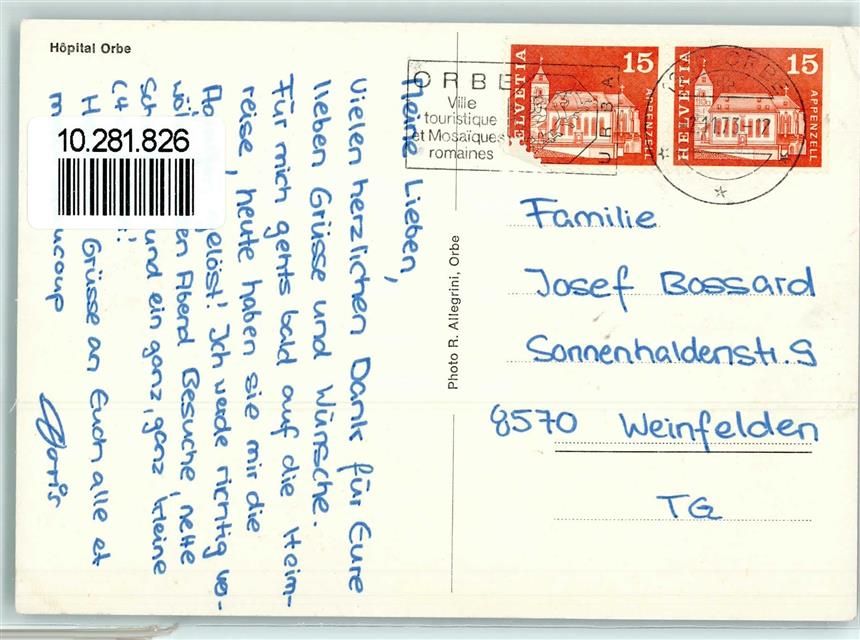 Hôpital Orbe
Meine Lieben,
Vielen herzlichen Dank für Eure
lieben Grüsse und Wünsche.
Für mich gehts bald auf die Heim-
reise, heute haben sie mir die
elöst! Ich werde richtig ver-
en Abend Besuche, nette
und ein ganz, ganz kleine
Grüsse an Euch alle et
ucoup
Doris
10.281.826
Photo R. Allegrini, Orbe
ORBE
Ville
touristique
et Mosaïques
romaines
URBA
HELVETIA
15
APPENZELL
HELVETIA
15
APPENZELL
ORBE
Familie
Josef Bossard
Sonnenhaldenstr. 9
8570 Weinfelden
TG